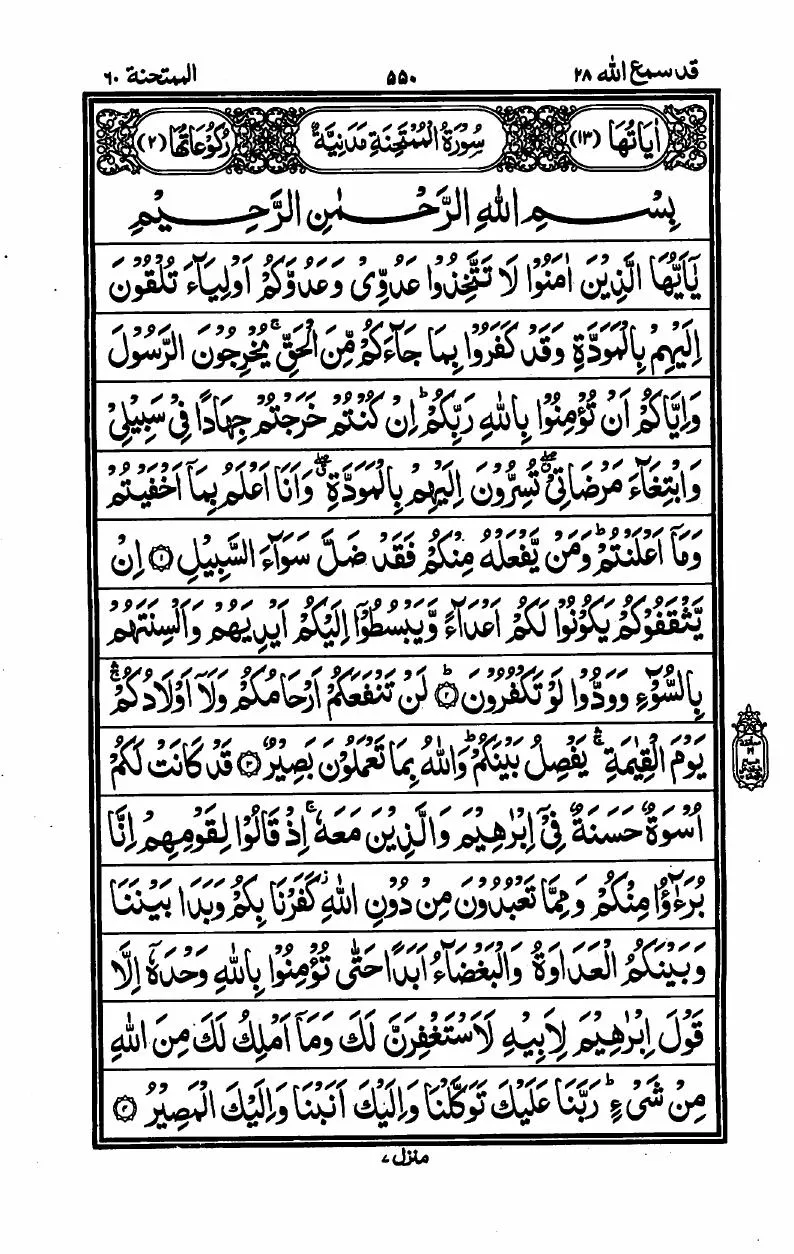 قد سمع الله ٢٨
٥٥٠
الممتحنة ٦٠
اٰيَاتُهَا (١٣)
سُوْرَةُ الْمُمْتَحِنَةِ مَدَنِيَّةٌ
رُكُوْعَاتُهَا (٢)
بِسْمِ اللّٰهِ الرَّحْمٰنِ الرَّحِيْمِ
يٰۤاَيُّهَا الَّذِيْنَ اٰمَنُوْا لَا تَتَّخِذُوْا عَدُوِّيْ وَعَدُوَّكُمْ اَوْلِيَآءَ تُلْقُوْنَ
اِلَيْهِمْ بِالْمَوَدَّةِ وَقَدْ كَفَرُوْا بِمَا جَآءَكُمْ مِّنَ الْحَقِّ ۚ يُخْرِجُوْنَ الرَّسُوْلَ
وَاِيَّاكُمْ اَنْ تُؤْمِنُوْا بِاللّٰهِ رَبِّكُمْ ؕ اِنْ كُنْتُمْ خَرَجْتُمْ جِهَادًا فِيْ سَبِيْلِيْ
وَابْتِغَآءَ مَرْضَاتِيْ ۖ تُسِرُّوْنَ اِلَيْهِمْ بِالْمَوَدَّةِ ۖ وَاَنَا اَعْلَمُ بِمَاۤ اَخْفَيْتُمْ
وَمَاۤ اَعْلَنْتُمْ ؕ وَمَنْ يَّفْعَلْهُ مِنْكُمْ فَقَدْ ضَلَّ سَوَآءَ السَّبِيْلِ ۝١ اِنْ
يَّثْقَفُوْكُمْ يَكُوْنُوْا لَكُمْ اَعْدَآءً وَّيَبْسُطُوْۤا اِلَيْكُمْ اَيْدِيَهُمْ وَاَلْسِنَتَهُمْ
بِالسُّوْٓءِ وَوَدُّوْا لَوْ تَكْفُرُوْنَ ؕ۝٢ لَنْ تَنْفَعَكُمْ اَرْحَامُكُمْ وَلَاۤ اَوْلَادُكُمْ ۛۚ
يَوْمَ الْقِيٰمَةِ ۛۚ يَفْصِلُ بَيْنَكُمْ ؕ وَاللّٰهُ بِمَا تَعْمَلُوْنَ بَصِيْرٌ ۝٣ قَدْ كَانَتْ لَكُمْ
اُسْوَةٌ حَسَنَةٌ فِيْۤ اِبْرٰهِيْمَ وَالَّذِيْنَ مَعَهٗ ۚ اِذْ قَالُوْا لِقَوْمِهِمْ اِنَّا
بُرَءٰٓؤُا مِنْكُمْ وَمِمَّا تَعْبُدُوْنَ مِنْ دُوْنِ اللّٰهِ ؗ كَفَرْنَا بِكُمْ وَبَدَا بَيْنَنَا
وَبَيْنَكُمُ الْعَدَاوَةُ وَالْبَغْضَآءُ اَبَدًا حَتّٰى تُؤْمِنُوْا بِاللّٰهِ وَحْدَهٗۤ اِلَّا
قَوْلَ اِبْرٰهِيْمَ لِاَبِيْهِ لَاَسْتَغْفِرَنَّ لَكَ وَمَاۤ اَمْلِكُ لَكَ مِنَ اللّٰهِ
مِنْ شَيْءٍ ؕ رَبَّنَا عَلَيْكَ تَوَكَّلْنَا وَاِلَيْكَ اَنَبْنَا وَاِلَيْكَ الْمَصِيْرُ ۝٤
منزل ٧